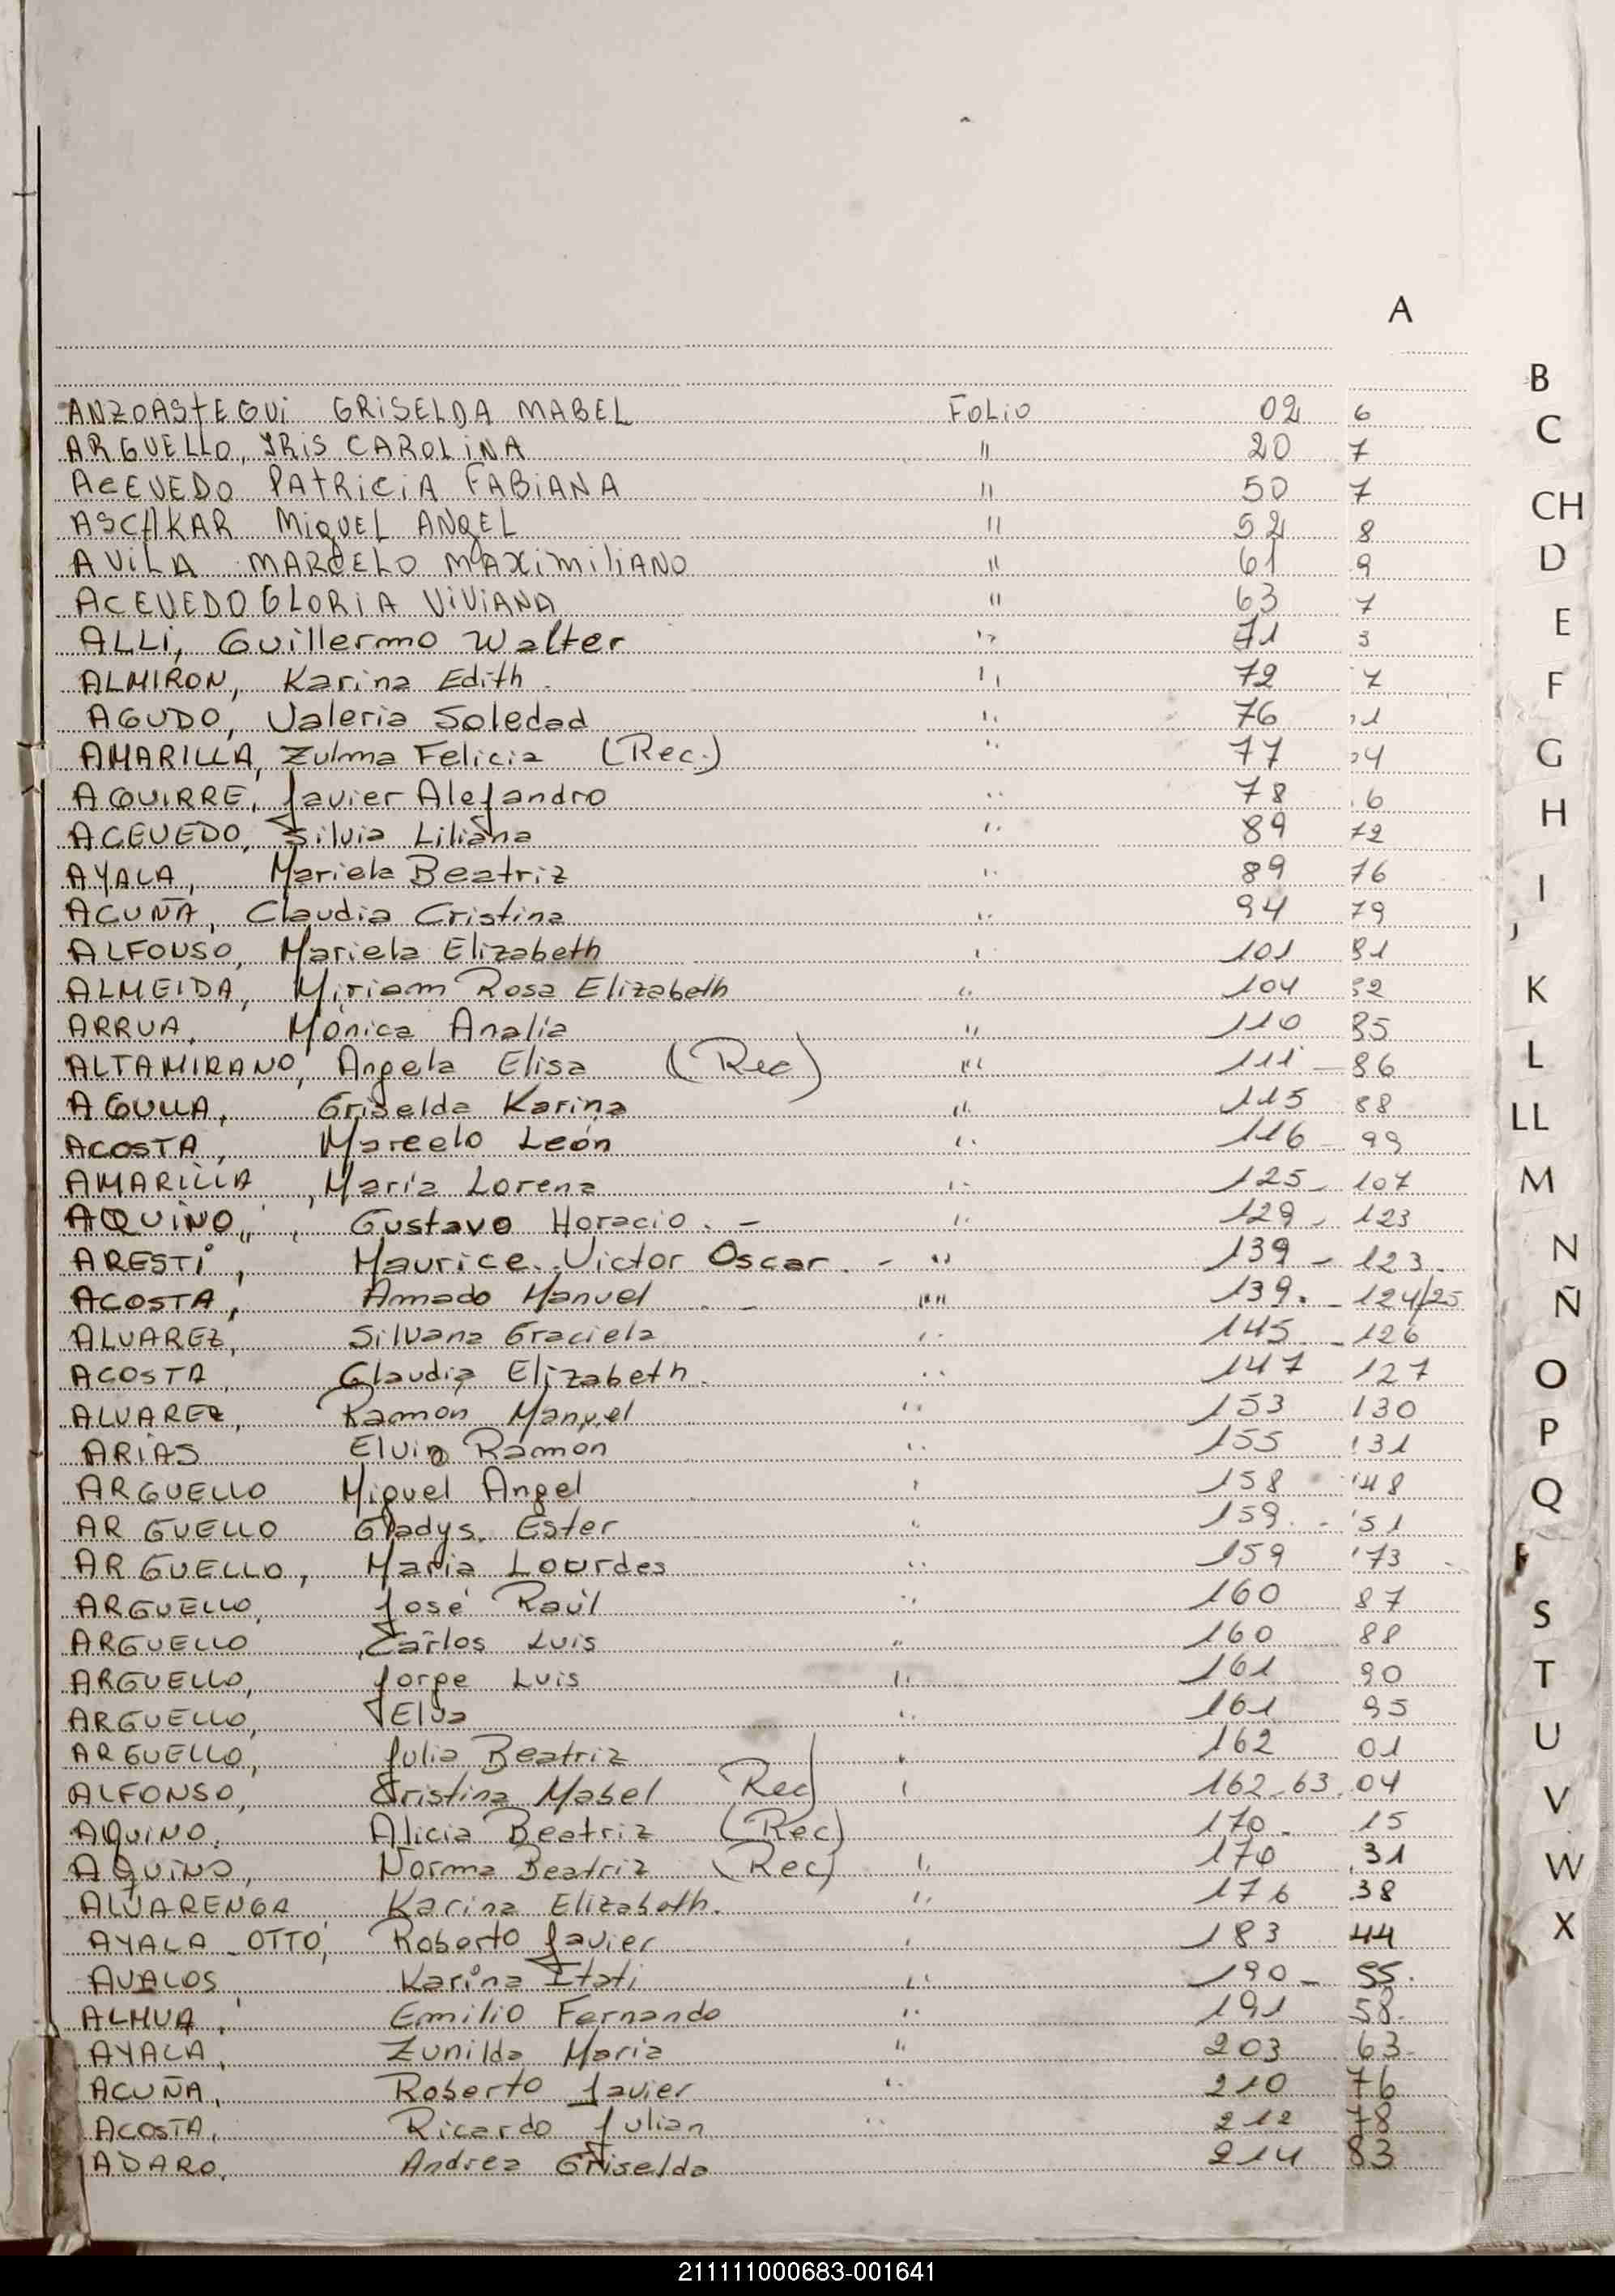 A
ANZOASTEGUI GRISELDA MABEL FOLIO 02 6
ARGUELLO, IRIS CAROLINA " 20 7
ACEVEDO PATRICIA FABIANA " 50 7
ASCHKAR MIGUEL ANGEL " 52 8
AVILA MARCELO MAXIMILIANO " 61 9
ACEVEDO GLORIA VIVIANA " 63 7
ALLI, Guillermo Walter " 71 3
ALMIRON, Karina Edith. " 72 7
AGUDO, Valeria Soledad " 76 1
AMARILLA, Zulma Felicia (Rec.) " 77 4
AGUIRRE, Javier Alejandro " 78 6
ACEVEDO, Silvia Liliana " 89 72
AYALA, Mariela Beatriz " 89 76
ACUÑA, Claudia Cristina " 94 79
ALFONSO, Mariela Elizabeth " 101 81
ALMEIDA, Miriam Rosa Elizabeth " 104 82
ARRUA, Mónica Analía " 110 85
ALTAMIRANO, Angela Elisa (Rec) " 111 - 86
Griselda Karina " 115 88
ACOSTA, Marcelo León " 116 - 99
AMARILLA, María Lorena " 125 - 107
AQUINO, Gustavo Horacio. - " 129 - 123
ARESTI, Maurice Victor Oscar. - " 139 - 123.
ACOSTA, Amado Manuel - " 139. - 124/25
ALVAREZ, Silvana Graciela " 145 - 126
ACOSTA, Claudia Elizabeth. " 147 127
ALVAREZ, Ramon Manuel " 153 130
ARIAS Elvio Ramon " 155 131
ARGUELLO Miguel Angel " 158 148
ARGUELLO Gladys Ester " 159. - 151
ARGUELLO, Maria Lourdes " 159 173
ARGUELLO, José Raúl " 160 87
ARGUELLO, Carlos Luis " 160 88
ARGUELLO, Jorge Luis " 161 90
ARGUELLO, Elva " 161 95
ARGUELLO, Julia Beatriz " 162 01
ALFONSO, Cristina Mabel Rec) " 162-63 04
AQUINO, Alicia Beatriz (Rec) 170. 15
AQUINO, Norma Beatriz (Rec) " 170 31
ALVARENGA Karina Elizabeth. " 176 38
AYALA OTTO, Roberto Javier " 183 44
AVALOS Karina Itati " 190 - 55.
ALMUA, Emilio Fernando " 191 58.
AYALA, Zunilda Maria " 203 63
ACUÑA, Roberto Javier " 210 76
ACOSTA, Ricardo Julian " 212 78
ADARO, Andrea Griselda 214 83
B
C
CH
D
E
F
G
H
I
J
K
L
LL
M
N
Ñ
O
P
Q
S
T
U
V
W
X
211111000683-001641